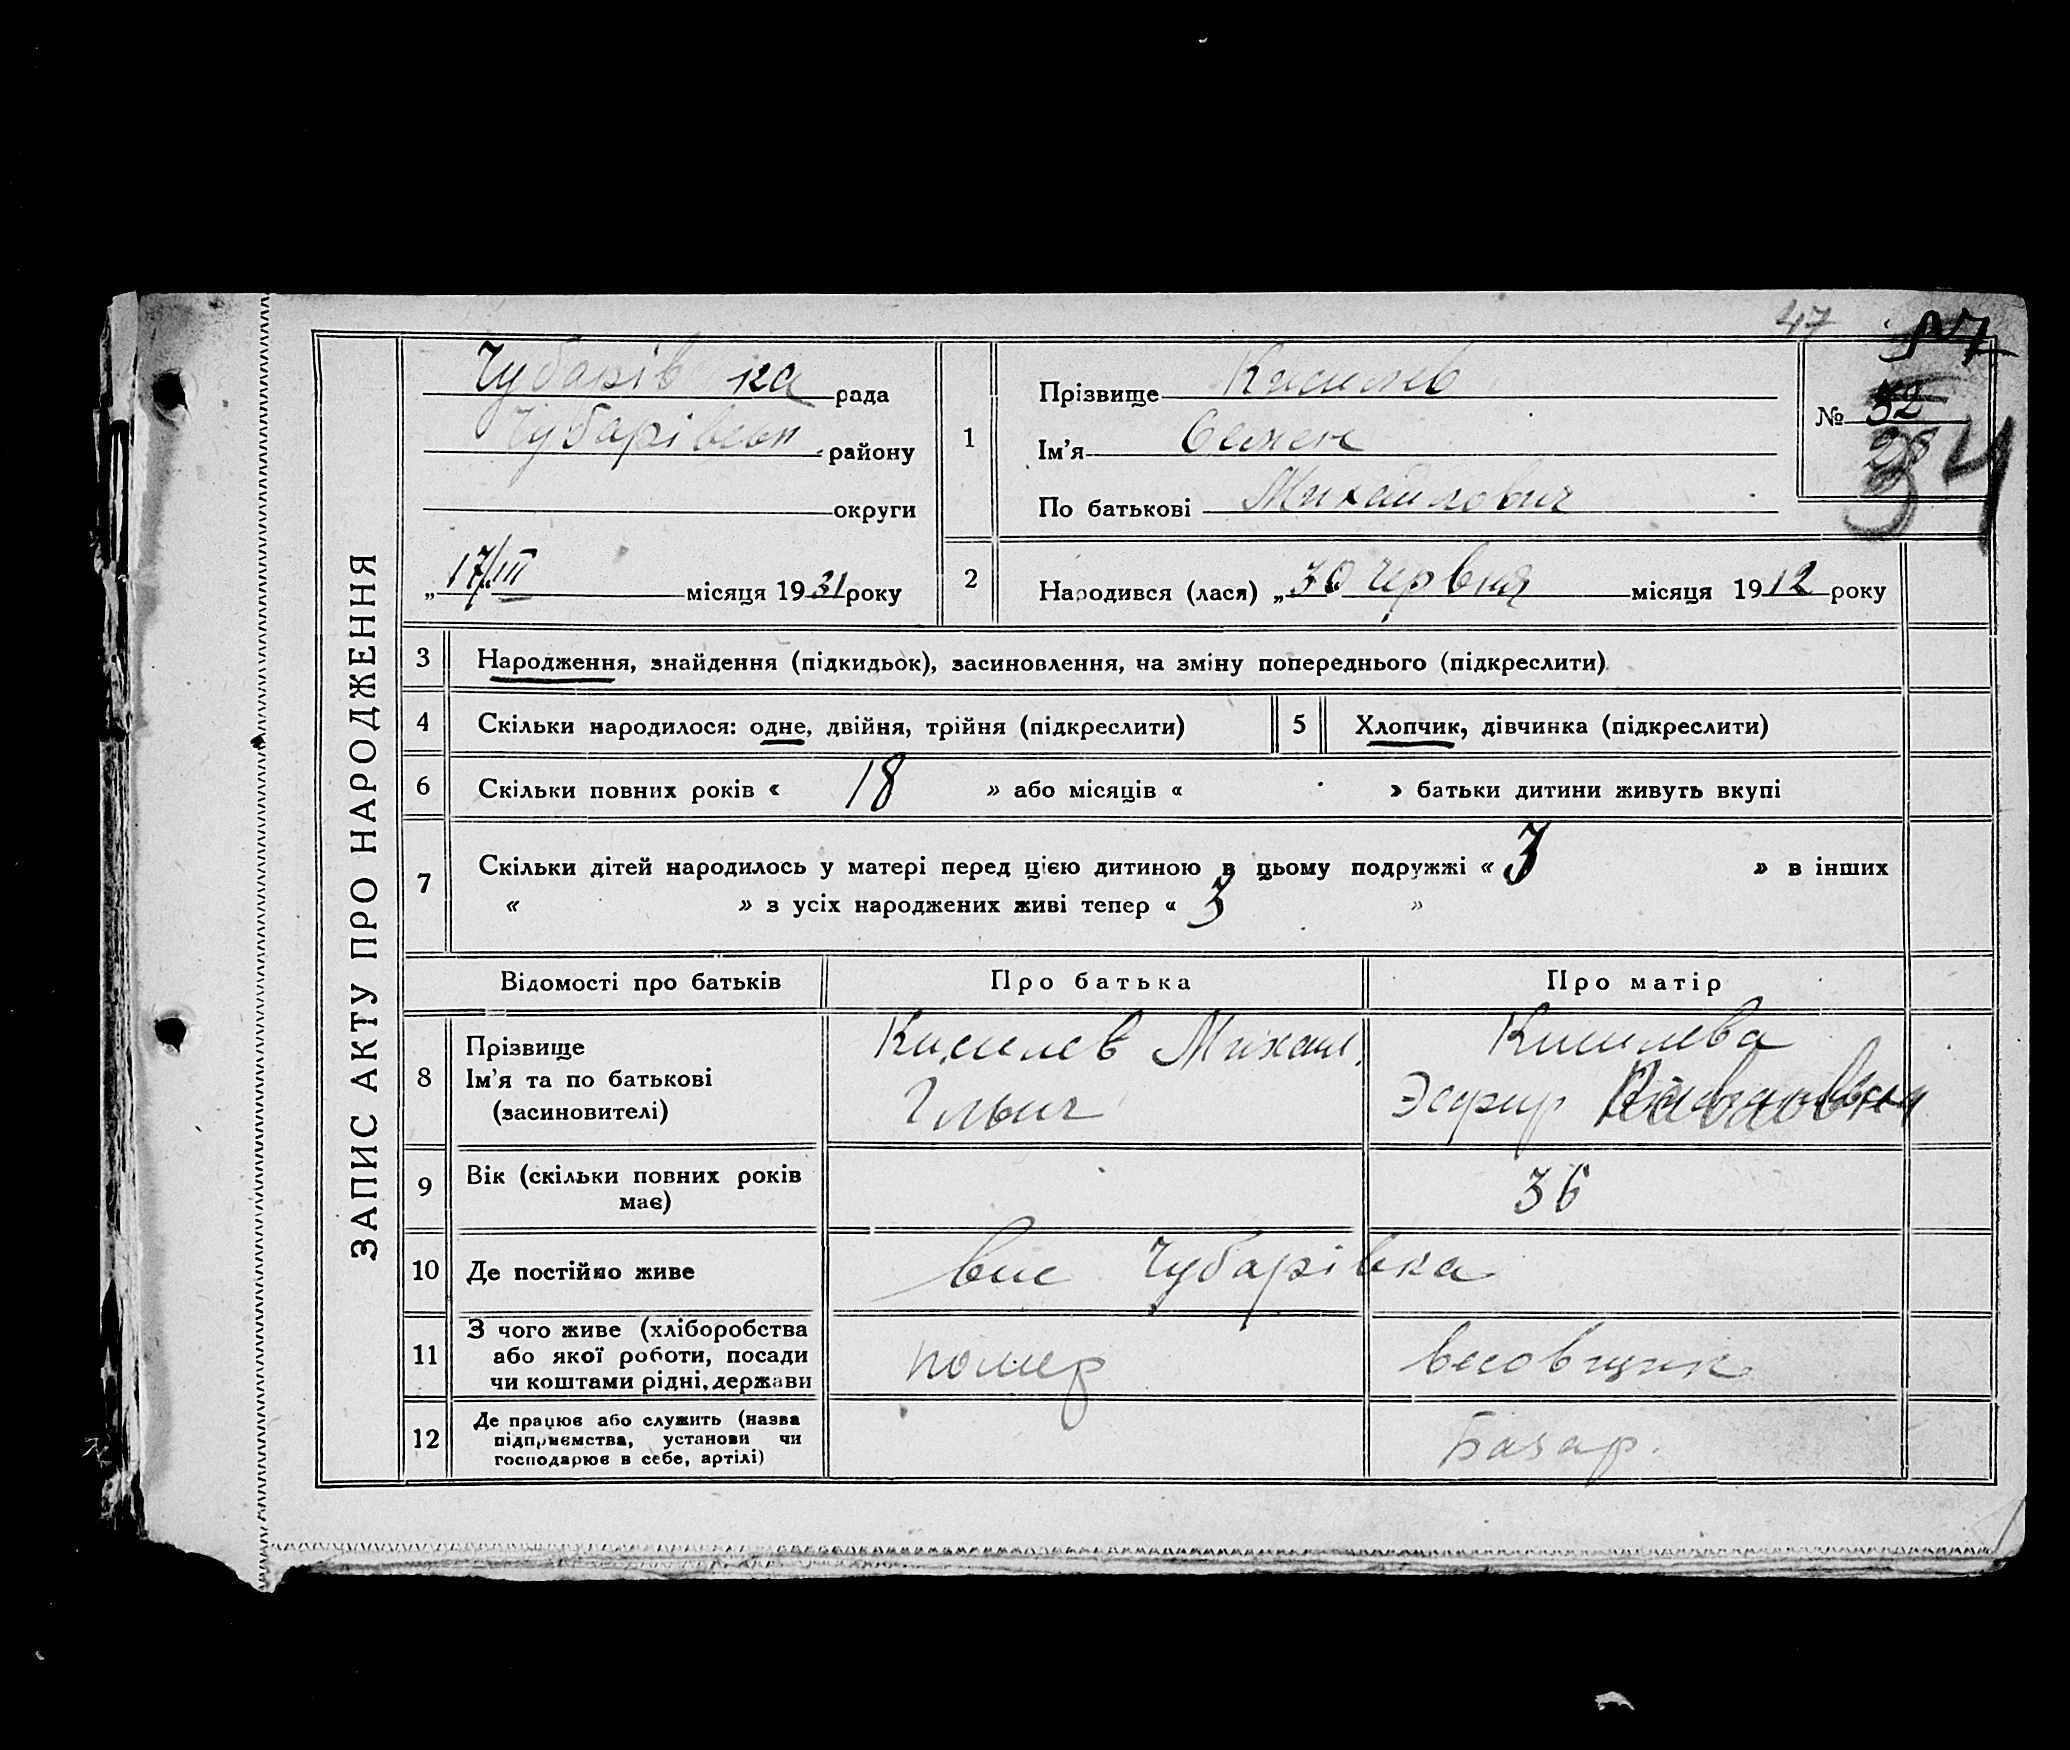 ЗАПИС АКТУ ПРО НАРОДЖЕННЯ
47
Чубарівка рада
Чубарівськ району
округи
„ 17/III місяця 1931 року
1
Прізвище Кисилев
Ім'я Семен
По батькові Михайлович
№ 32
28
34
2
Народився (лася) „30 Червня місяця 1912 року
3 Народження, знайдення (підкидьок), засиновлення, на зміну попереднього (підкреслити)
4 Скільки народилося: одне, двійня, трійня (підкреслити)
5 Хлопчик, дівчинка (підкреслити)
6 Скільки повних років « 18 » або місяців « » батьки дитини живуть вкупі
7 Скільки дітей народилось у матері перед цією дитиною в цьому подружжі « 3 » в інших
« » з усіх народжених живі тепер « 3 »
Відомості про батьків
Про батька
Про матір
8 Прізвище
Ім'я та по батькові
(засиновителі)
Кисилев Михаил
Ільич
Кисилева
Эсфир
9 Вік (скільки повних років
має)
36
10 Де постійно живе
вис Чубарівка
11 З чого живе (хліборобства
або якої роботи, посади
чи коштами рідні, держави
помер
весовщик
12 Де працює або служить (назва
підприємства, установи чи
господарює в себе, артілі)
Базар.